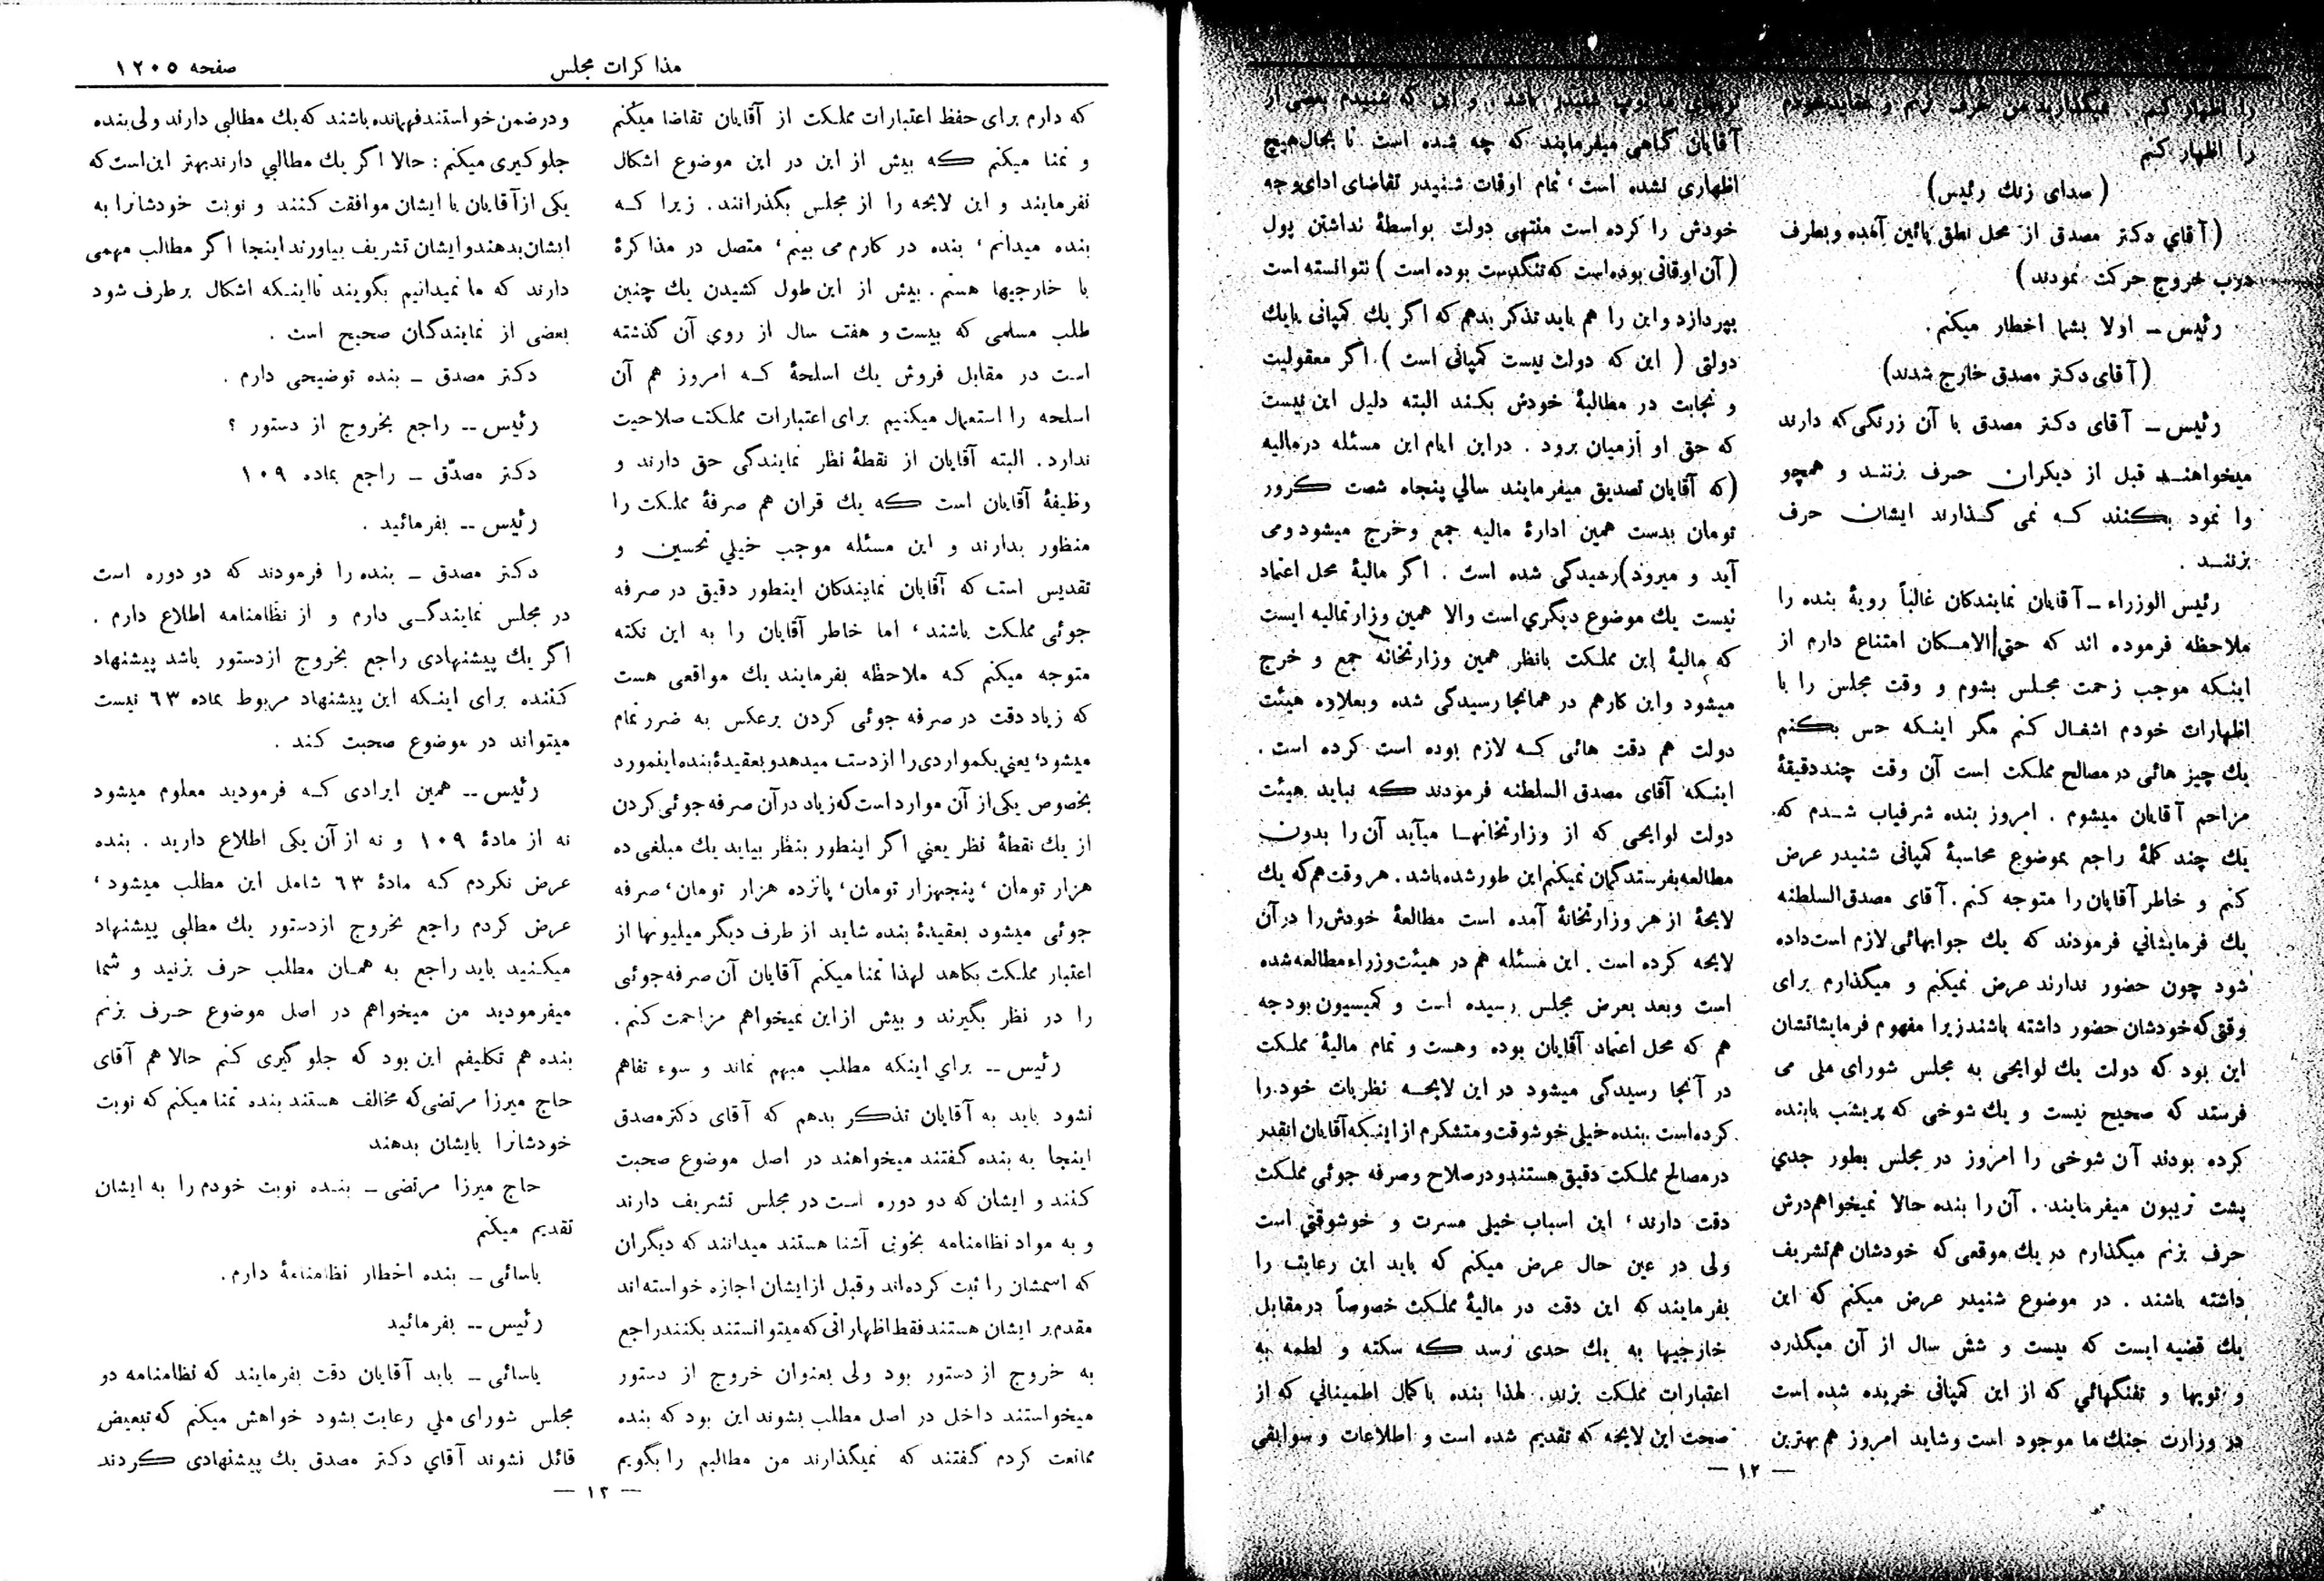 را اظهار کنم . میگذارید من حرف بزنم و عقاید خودم
را اظهار کنم
(صدای زنك رئیس)
(آقاي دکتر مصدق از محل نطق پائین آمده و بطرف
درب خروج حرکت نمودند)
رئیس ــ اولا بشما اخطار میکنم .
(آقای دکتر مصدق خارج شدند)
رئیس ــ آقای دکتر مصدق با آن زرنگی که دارند
میخواهند قبل از دیگران حرف بزنند و همچو
وا نمود بکنند که نمی گذارند ایشان حرف
بزنند .
رئیس الوزراء ــ آقایان نمایندکان غالباً رویۀ بنده را
ملاحظه فرموده اند که حتي الامکان امتناع دارم از
اینکه موجب زحمت مجلس بشوم و وقت مجلس را با
اظهارات خودم اشغال کنم مگر اینکه حس بکنم
یك چیز هائی در مصالح مملکت است آن وقت چند دقیقۀ
مزاحم آقایان میشوم . امروز بنده شرفیاب شدم که
یك چند کلمۀ راجع بموضوع محاسبۀ کمپانی شنیدر عرض
کنم و خاطر آقایان را متوجه کنم . آقای مصدق السلطنه
یك فرمایشاتي فرمودند که یك جوابهائی لازم است داده
شود چون حضور ندارند عرض نمیکنم و میگذارم برای
وقتی که خودشان حضور داشته باشند زیرا مفهوم فرمایشاتشان
این بود که دولت یك لوایحی به مجلس شورای ملی می
فرستد که صحیح نیست و یك شوخی که پریشب بابنده
کرده بودند آن شوخی را امروز در مجلس بطور جدي
پشت تریبون میفرمایند . آن را بنده حالا نمیخواهم درش
حرف بزنم میگذارم در یك موقعی که خودشان هم تشریف
داشته باشند . در موضوع شنیدر عرض میکنم که این
یك قضیه ایست که بیست و شش سال از آن میگذرد
و توپها و تفنگهائي که از این کمپانی خریده شده است
در وزارت جنك ما موجود است و شاید امروز هم بهترین
توپهای ما توپ شنیدر باشد . و این که شنیدم بعضی از
آقایان گاهی میفرمایند که چه شده است تا بحال هیچ
اظهاری نشده است ، تمام اوقات شنیدر تقاضای ادای وجه
خودش را کرده است منتهی دولت بواسطۀ نداشتن پول
(آن اوقاتی بوده است که تنگدست بوده است) نتوانسته است
بپردازد و این را هم باید تذکر بدهم که اگر یك کمپانی یا یك
دولتی (این که دولت نیست کمپانی است) . اگر معقولیت
و نجابت در مطالبۀ خودش بکند البته دلیل این نیست
که حق او از میان برود . در این ایام این مسئله در مالیه
(که آقایان تصدیق میفرمایند سالي پنجاه شصت کرور
تومان بدست همین ادارۀ مالیه جمع و خرج میشود و می
آید و میرود) رسیدگی شده است . اگر مالیۀ محل اعتماد
نیست یك موضوع دیگري است والا همین وزارتمالیه ایست
که مالیۀ این مملکت بانظر همین وزارتخانه جمع و خرج
میشود و این کار هم در همانجا رسیدگی شده و بعلاوه هیئت
دولت هم دقت هائی که لازم بوده است کرده است .
اینکه آقای مصدق السلطنه فرمودند که نباید هیئت
دولت لوایحی که از وزارتخانها میآید آن را بدون
مطالعه بفرستد گمان نمیکنم این طور شده باشد . هر وقت هم که یك
لایحۀ از هر وزارتخانۀ آمده است مطالعۀ خودش را در آن
لایحه کرده است . این مسئله هم در هیئت وزراء مطالعه شده
است و بعد بعرض مجلس رسیده است و کمیسیون بودجه
هم که محل اعتماد آقایان بوده و هست و تمام مالیۀ مملکت
در آنجا رسیدگی میشود در این لایحه نظریات خود را
کرده است . بنده خیلی خوشوقت و متشکرم از اینکه آقایان انقدر
در مصالح مملکت دقیق هستند و در صلاح و صرفه جوئی مملکت
دقت دارند ، این اسباب خیلی مسرت و خوشوقتي است
ولی در عین حال عرض میکنم که باید این رعایت را
بفرمایند که این دقت در مالیۀ مملکت خصوصاً در مقابل
خارجیها به یك حدی نرسد که سکته و لطمه به
اعتبارات مملکت بزند . لهذا بنده باکمال اطمیناني که از
صحت این لایحه که تقدیم شده است و اطلاعات و سوابقی
— ۱۲ —
مذاکرات مجلس
صفحه ۱۲۰۵
که دارم برای حفظ اعتبارات مملکت از آقایان تقاضا میکنم
و تمنا میکنم که بیش از این در این موضوع اشکال
نفرمایند و این لایحه را از مجلس بگذرانند . زیرا که
بنده میدانم ، بنده در کارم می بینم ، متصل در مذاکرۀ
با خارجیها هستم . بیش از این طول کشیدن یك چنین
طلب مسلمی که بیست و هفت سال از روي آن گذشته
است در مقابل فروش یك اسلحۀ که امروز هم آن
اسلحه را استعمال میکنیم برای اعتبارات مملکت صلاحیت
ندارد . البته آقایان از نقطۀ نظر نمایندگی حق دارند و
وظیفۀ آقایان است که یك قران هم صرفۀ مملکت را
منظور بدارند و این مسئله موجب خیلي تحسین و
تقدیس است که آقایان نمایندکان اینطور دقیق در صرفه
جوئی مملکت باشند ، اما خاطر آقایان را به این نکته
متوجه میکنم که ملاحظه بفرمایند یك مواقعی هست
که زیاد دقت در صرفه جوئی کردن برعکس به ضرر تمام
میشود ، یعني یکمواردی را از دست میدهد و بعقیدۀ بنده اینمورد
بخصوص یکی از آن موارد است که زیاد در آن صرفه جوئی کردن
از یك نقطۀ نظر یعني اگر اینطور بنظر بیاید یك مبلغی ده
هزار تومان ، پنجهزار تومان ، پانزده هزار تومان ، صرفه
جوئی میشود بعقیدۀ بنده شاید از طرف دیگر میلیونها از
اعتبار مملکت بکاهد لهذا تمنا میکنم آقایان آن صرفه جوئی
را در نظر بگیرند و بیش از این نمیخواهم مزاحمت کنم .
رئیس ــ براي اینکه مطلب مبهم نماند و سوء تفاهم
نشود باید به آقایان تذکر بدهم که آقای دکتر مصدق
اینجا به بنده گفتند میخواهند در اصل موضوع صحبت
کنند و ایشان که دو دوره است در مجلس تشریف دارند
و به مواد نظامنامه بخوبی آشنا هستند میدانند که دیگران
که اسمشان را ثبت کرده‌اند و قبل از ایشان اجازه خواسته‌اند
مقدم بر ایشان هستند فقط اظهاراتی که میتوانستند بکنند راجع
به خروج از دستور بود ولی بعنوان خروج از دستور
میخواستند داخل در اصل مطلب بشوند این بود که بنده
ممانعت کردم گفتند که نمیگذارند من مطالبم را بگویم
و در ضمن خواستند فهمانده باشند که یك مطالبی دارند ولی بنده
جلوکیری میکنم : حالا اگر یك مطالبي دارند بهتر این است که
یکی از آقایان با ایشان موافقت کنند و نوبت خودشانرا به
ایشان بدهند و ایشان تشریف بیاورند اینجا اگر مطالب مهمی
دارند که ما نمیدانیم بگویند تا اینکه اشکال بر طرف شود
بعضی از نمایندگان صحیح است .
دکتر مصدق ــ بنده توضیحی دارم .
رئیس ــ راجع بخروج از دستور ؟
دکتر مصدّق ــ راجع بماده ۱۰۹
رئیس ــ بفرمائید .
دکتر مصدق ــ بنده را فرمودند که دو دوره است
در مجلس نمایندگی دارم و از نظامنامه اطلاع دارم .
اگر یك پیشنهادی راجع بخروج از دستور باشد پیشنهاد
کننده برای اینکه این پیشنهاد مربوط بماده ٦٣ نیست
میتواند در موضوع صحبت کند .
رئیس ــ همین ایرادی که فرمودید معلوم میشود
نه از مادۀ ۱۰۹ و نه از آن یکی اطلاع دارید . بنده
عرض نکردم که مادۀ ٦٣ شامل این مطلب میشود ،
عرض کردم راجع بخروج از دستور یك مطلبی پیشنهاد
میکنید باید راجع به همان مطلب حرف بزنید و شما
میفرمودید من میخواهم در اصل موضوع حرف بزنم
بنده هم تکلیفم این بود که جلو گیری کنم حالا هم آقای
حاج میرزا مرتضی که مخالف هستند بنده تمنا میکنم که نوبت
خودشانرا بایشان بدهند
حاج میرزا مرتضی ــ بنده نوبت خودم را به ایشان
تقدیم میکنم
یاسائی ــ بنده اخطار نظامنامۀ دارم .
رئیس ــ بفرمائید
یاسائی ــ باید آقایان دقت بفرمایند که نظامنامه در
مجلس شورای ملي رعایت بشود خواهش میکنم که تبعیض
قائل نشوند آقاي دکتر مصدق یك پیشنهادی کردند
— ۱۳ —